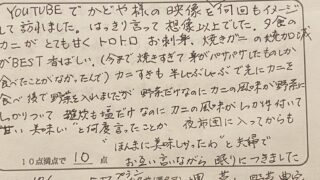 YOUTUBEでかどや様の映像を何回もイメージ
して訪れました。はっきり言って想像以上でした。夕食の
カニがとても甘くトロトロ お刺身、焼きガニの焼加減
がBEST 者ばしい。(今まで焼きすぎて身がパサパサしたものしか
食べたことがなかったんで) カニすきも半しゃぶしゃぶで先にカニを
食べ後で野菜を入れましたが野菜だけなのにカニの風味が野菜に
しかりついて 雑炊も塩だけなのにカニの風味がしっかり付いて
甘い 美味しい"と何度言ったことか 夜布団に入ってからも
"ほんまに美味しかったわ"と夫婦で
10点満点で 10 点 お互い言いながら眠りにつきました